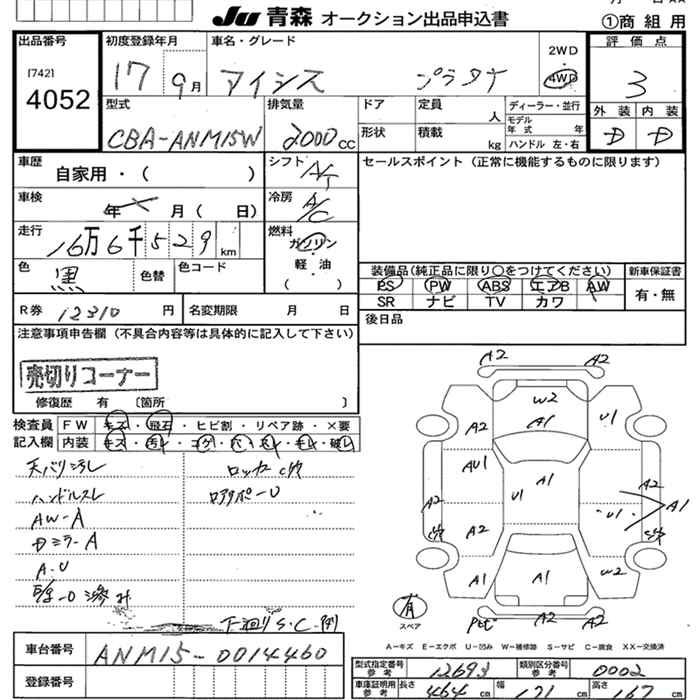 Ju 青森 オークション出品申込書
①商 組 用
出品番号
[742]
4052
初度登録年月
17 9月
車名・グレード
アイシス プラタナ
2WD
4WD
評価点
3
型式
CBA-ANM15W
排気量
2000cc
ドア
形状
定員 人
積載 kg
ディーラー・並行
モデル年式 年
ハンドル 左・右
外装 内装
D D
車歴
自家用・( )
シフト
A/T
セールスポイント(正常に機能するものに限ります)
車検
年 月( 日)
冷房
A/C
走行
16万6千529km
燃料
ガソリン・
軽・油
( )
色
黒
色替
色コード
装備品(純正品に限り○をつけてください)
新車保証書
PS PW ABS エアB AW
SR ナビ TV カワ
有・無
R券 12310円
名変期限 月 日
後日品
注意事項申告欄(不具合内容等は具体的に記入して下さい)
売切りコーナー
修復歴 有 〔箇所 〕
検査員 FW キズ・飛石・ヒビ割・リペア跡・×要
記入欄 内装 キズ・汚レ・コゲ・穴・スレ・キレ・破レ
天バリヨゴレ
ハンドルスレ
AW-A
Dミラー A
A・U
ロッカー
下廻りS・C
A2 A2
W2
A1
A2 U1
AU1 A1
U1
A2 A1
U1
A2
A1 A1 W2
A2 A2
有
スペア
A-キズ E-エクボ U-凹み W-補修跡 S-サビ C-腐食 XX-交換済
車台番号
ANM15-0014460
登録番号
型式指定番号
参考
12693
類別区分番号
参考
0002
車庫証明用
参考
長さ 464cm 幅 171cm 高さ 167cm